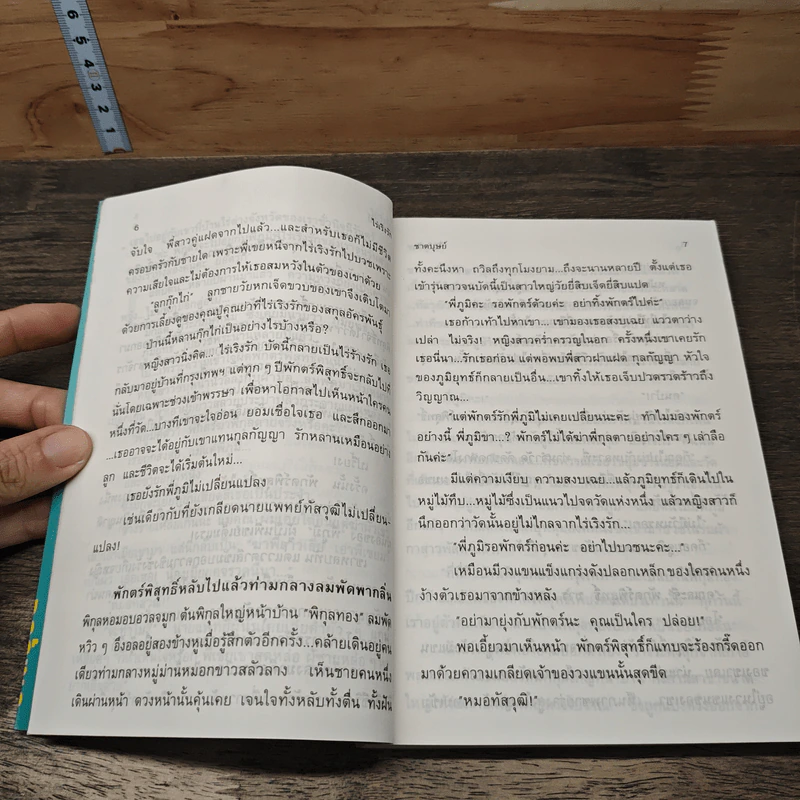 6
5
4
3
2
1
6
ไร่เริงรัก
จับใจ พี่สาวคู่แฝดจากไปแล้ว...และสำหรับเธอก็ไม่มีชีวิต
ครอบครัวกับชายใด เพราะพี่เขยหนีจากไร่เริงรักไปบวชเพราะ
ความเสียใจและไม่ต้องการให้เธอสมหวังในตัวของเขาด้วย
"ลูกกุ๊กไก่" ลูกชายวัยหกเจ็ดขวบของเขาจึงเติบโตมา
ด้วยการเลี้ยงดูของคุณปู่คุณย่าที่ไร่เริงรักของสกุลอัครพันธุ์
ป่านนี้หลานกุ๊กไก่เป็นอย่างไรบ้างหรือ?
หญิงสาวนิ่งคิด... ไร่เริงรัก บัดนี้กลายเป็นไร่ร้างรัก เธอ
กลับมาอยู่บ้านที่กรุงเทพฯ แต่ทุก ๆ ปีพักตร์พิสุทธิ์จะกลับไปที่
นั่นโดยเฉพาะช่วงเข้าพรรษา เพื่อหาโอกาสไปเห็นหน้าใครคน
หนึ่งที่วัด...บางทีเขาจะใจอ่อน ยอมเชื่อใจเธอ และสึกออกมา
...เธออาจจะได้อยู่กับเขาแทนกุลกัญญา รักหลานเหมือนอย่าง
ลูก และชีวิตจะได้เริ่มต้นใหม่...
เธอยังรักพี่ภูมิไม่เปลี่ยนแปลง
เช่นเดียวกับที่ยังเกลียดนายแพทย์ทัสวุฒิไม่เปลี่ยน-
แปลง!
พักตร์พิสุทธิ์หลับไปแล้วท่ามกลางลมพัดพากลิ่น
พิกุลหอมอบอวลจมูก ต้นพิกุลใหญ่หน้าบ้าน "พิกุลทอง" ลมพัด
หวิว ๆ อึงอลอยู่สองข้างหูเมื่อรู้สึกตัวอีกครั้ง...คล้ายเดินอยู่คน
เดียวท่ามกลางหมู่ม่านหมอกขาวสลัวลาง เห็นชายคนหนึ่ง
เดินผ่านหน้า ดวงหน้านั้นคุ้นเคย เจนใจทั้งหลับทั้งตื่น ทั้งฝัน
ชาตบุษย์
7
ทั้งคะนึงหา ถวิลถึงทุกโมงยาม...ถึงจะนานหลายปี ตั้งแต่เธอ
เข้ารุ่นสาวจนบัดนี้เป็นสาวใหญ่วัยยี่สิบเจ็ดยี่สิบแปด
"พี่ภูมิคะ รอพักตร์ด้วยค่ะ อย่าทิ้งพักตร์ไปค่ะ"
เธอก้าวเท้าไปหาเขา... เข้ามองเธอสงบเฉย แววตาว่าง
เปล่า ไม่จริง! หญิงสาวคร่ำครวญในอก ครั้งหนึ่งเขาเคยรัก
เธอนี่นา...รักเธอก่อน แต่พอพบพี่สาวฝาแฝด กุลกัญญา หัวใจ
ของภูมิยุทธ์ก็กลายเป็นอื่น...เขาทิ้งให้เธอเจ็บปวดรวดร้าวถึง
วิญญาณ...
"แต่พักตร์รักพี่ภูมิไม่เคยเปลี่ยนนะคะ ทำไม่มองพักตร์
อย่างนี้ พี่ภูมิขา...? พักตร์ไม่ได้ฆ่าพี่กุลตายอย่างใคร ๆ เล่าลือ
กันค่ะ"
มีแต่ความเงียบ ความสงบเฉย...แล้วภูมิยุทธ์ก็เดินไปใน
หมู่ไม้ทึบ...หมู่ไม้ซึ่งเป็นแนวไปจดวัดแห่งหนึ่ง แล้วหญิงสาวก็
นึกออกว่าวัดนั้นอยู่ไม่ไกลจากไร่เริงรัก...
"พี่ภูมิรอพักตร์ก่อนค่ะ อย่าไปบวชนะคะ..."
เหมือนมีวงแขนแข็งแกร่งดังปลอกเหล็ก ของใครคนหนึ่ง
ง้างตัวเธอมาจากข้างหลัง
"อย่ามายุ่งกับพักตร์นะ คุณเป็นใคร ปล่อย!"
พอเอี้ยวมาเห็นหน้า พักตร์พิสุทธิ์ก็แทบจะร้องกรี๊ดออก
มาด้วยความเกลียดเจ้าของวงแขนนั้นสุดขีด
"หมอทัสวุฒิ!"